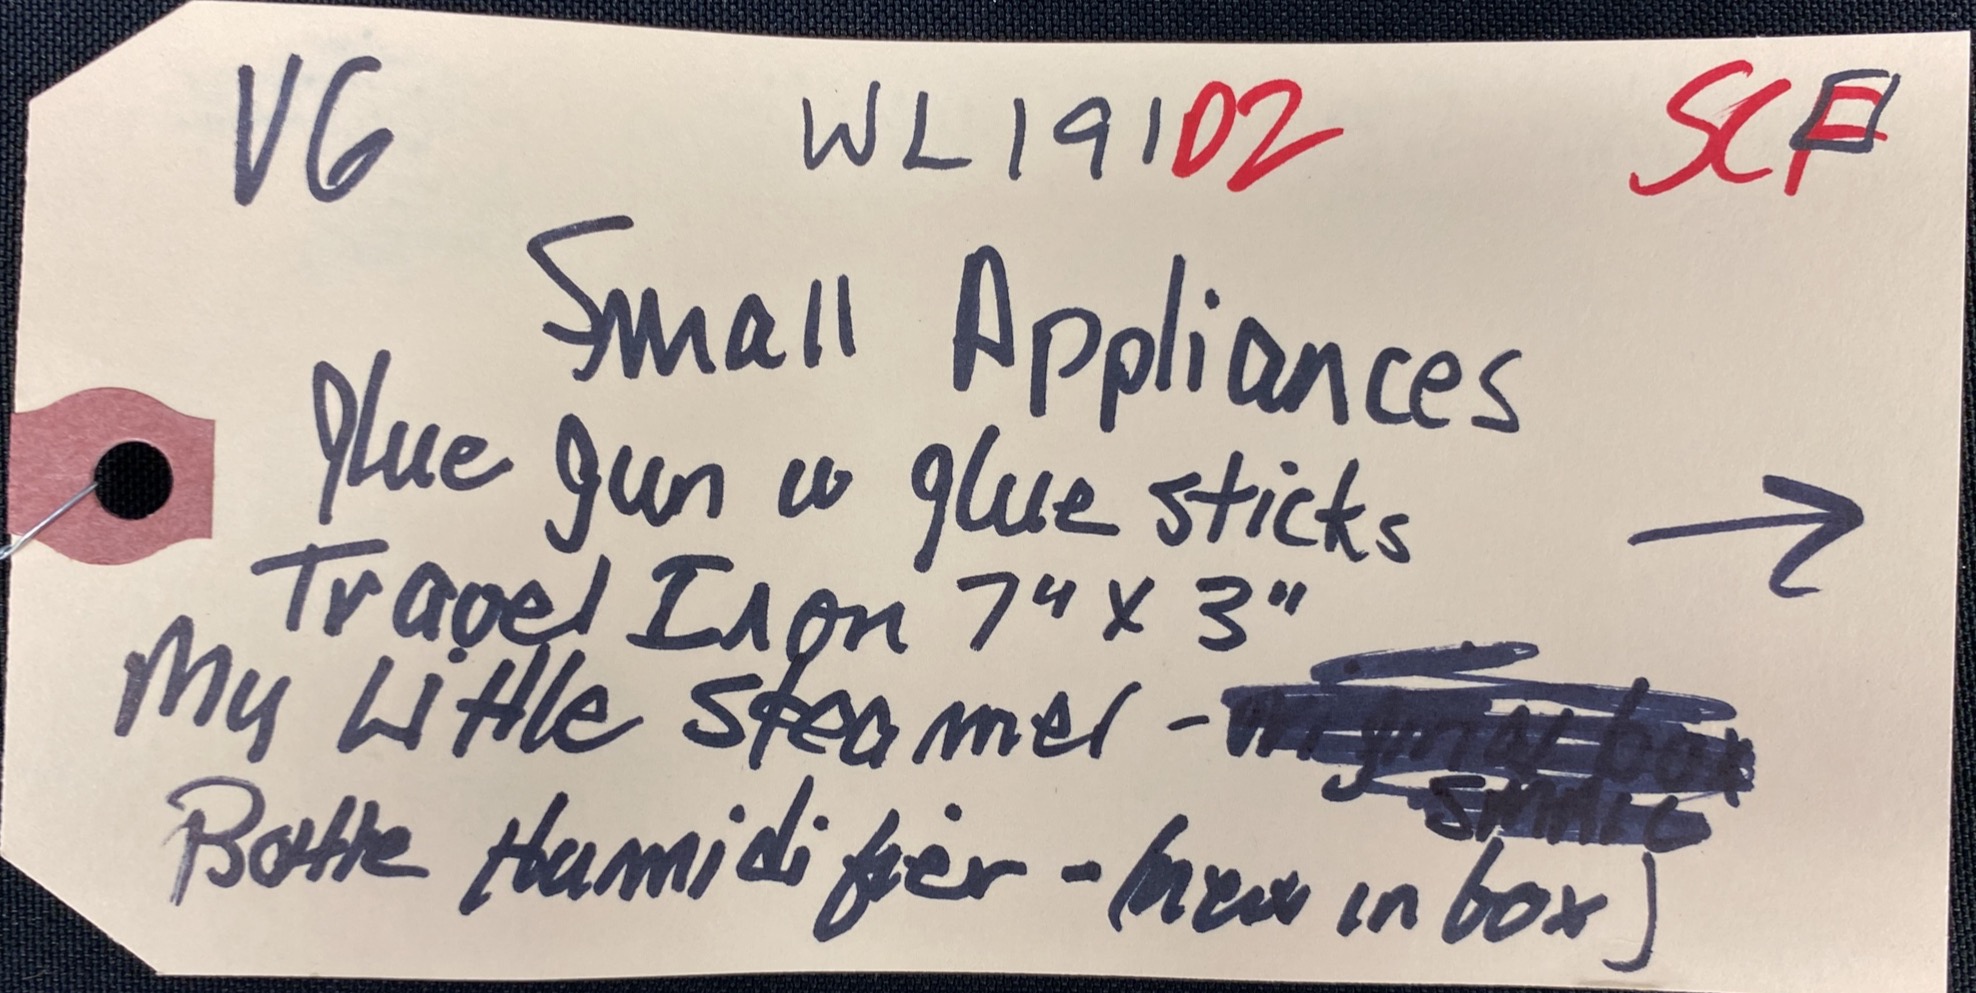 VG WL191D2 SCF
Small Appliances
glue gun w glue sticks
Travel Iron 7" x 3" →
My Little Steamer -
Bottle Humidifier - (new in box)